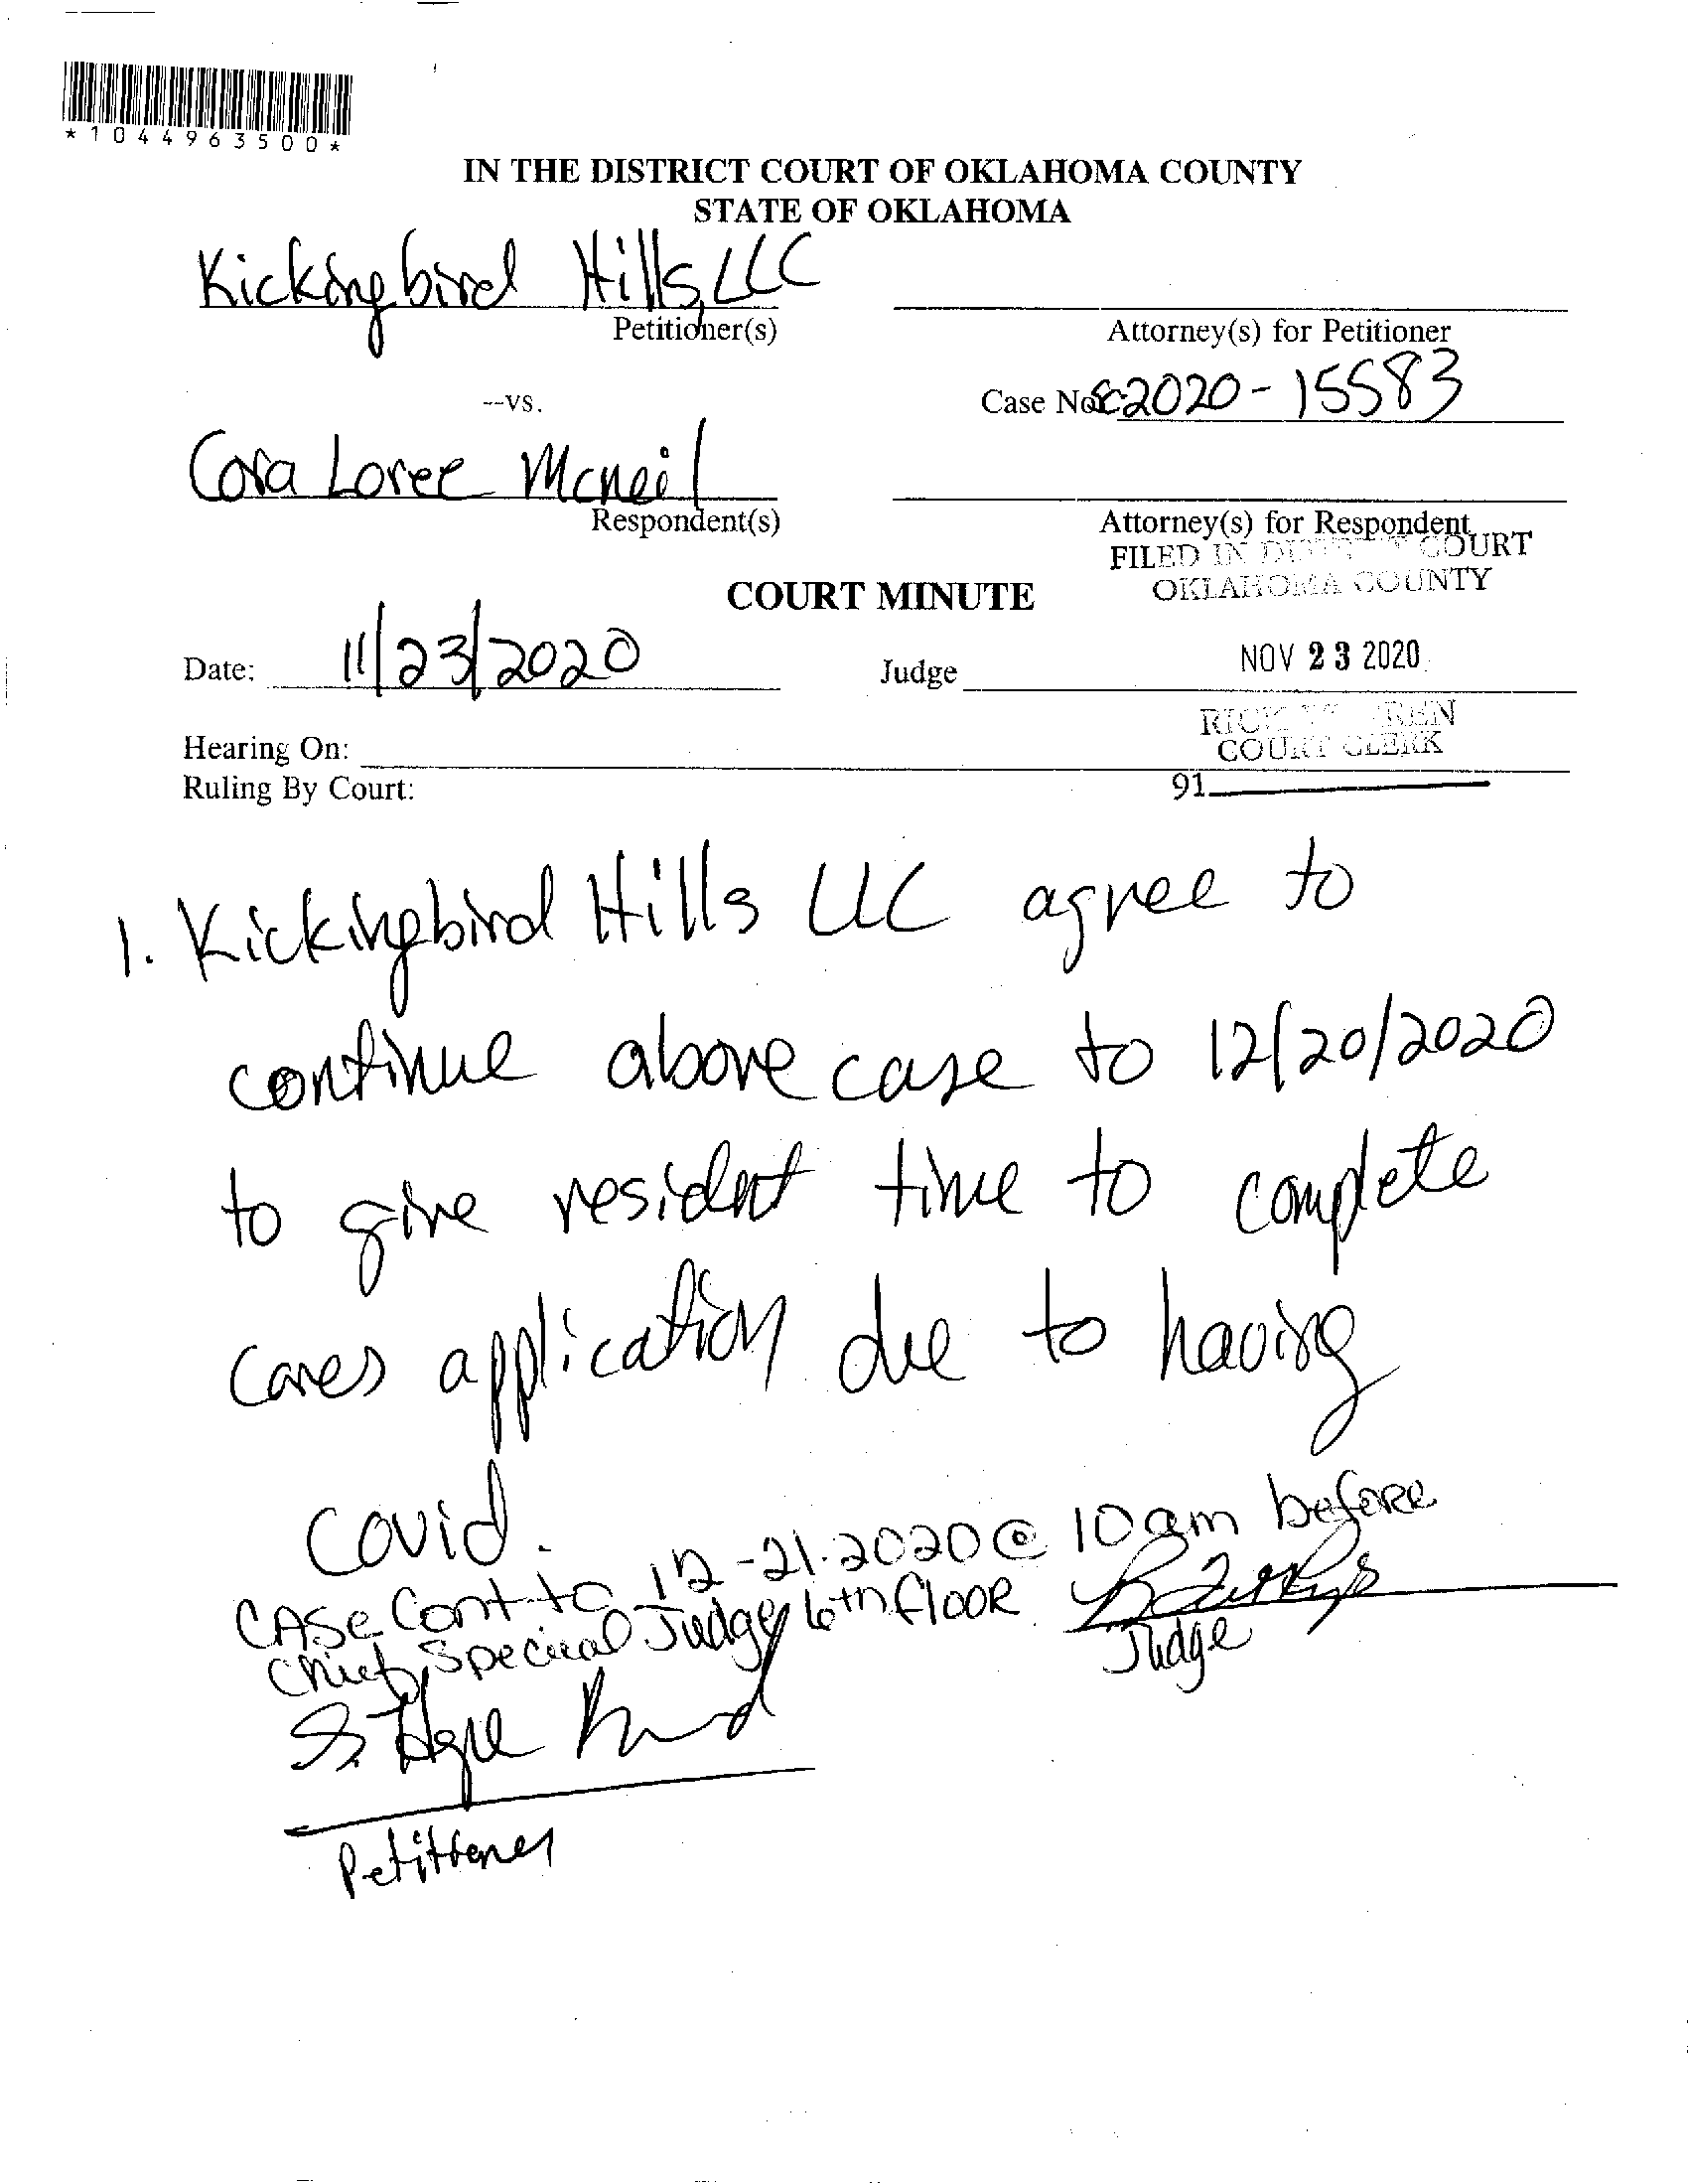 *1044963500*
IN THE DISTRICT COURT OF OKLAHOMA COUNTY
STATE OF OKLAHOMA
Kickingbird Hills, LLC
Petitioner(s)
Attorney(s) for Petitioner
--vs.
Case No. SC2020-15583
Cora Loree Mcneil
Respondent(s)
Attorney(s) for Respondent
FILED IN DISTRICT COURT
OKLAHOMA COUNTY
COURT MINUTE
Date: 11/23/2020
Judge
NOV 23 2020
Hearing On:
RICK WARREN
COURT CLERK
Ruling By Court:
91
1. Kickingbird Hills LLC agree to
continue above case to 12/20/2020
to give resident time to complete
Cares application due to having
Covid.
CASE Cont to 12-21-2020 @ 10am before
Chief Special Judge 6th flooR
Judge
Petitioner